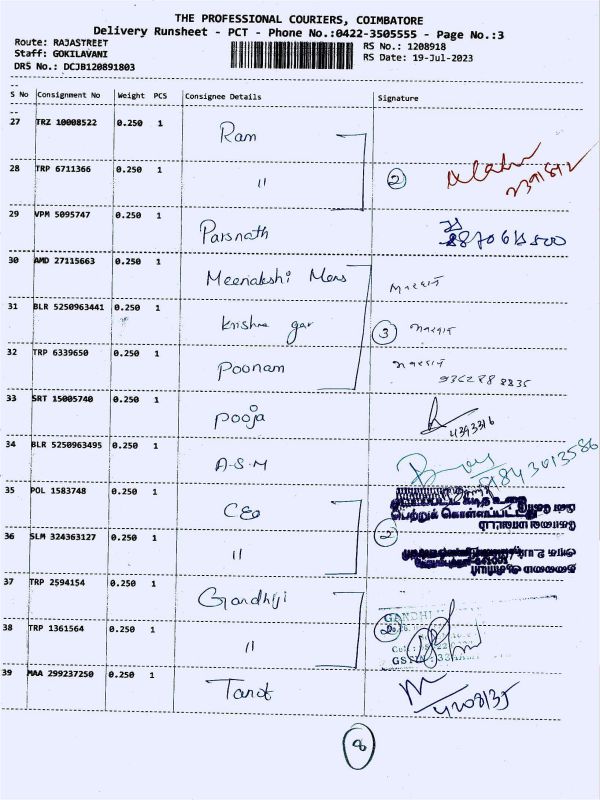 THE PROFESSIONAL COURIERS, COIMBATORE
Delivery Runsheet - PCT - Phone No.:0422-3505555 - Page No.:3
Route: RAJASTREET
RS No.: 1208918
Staff: GOKILAVANI
RS Date: 19-Jul-2023
DRS No.: DCJB120891803
S No Consignment No Weight PCS Consignee Details Signature
27 TRZ 10008522 0.250 1 Ram
28 TRP 6711366 0.250 1 " 2
29 VPM 5095747 0.250 1 Parsnath
30 AMD 27115663 0.250 1 Meenakshi Mens
31 BLR 5250963441 0.250 1 Krishna gar 3
32 TRP 6339650 0.250 1 Poonam
33 SRT 15005740 0.250 1 Pooja
4393316
34 BLR 5250963495 0.250 1 A-S-M
9843013586
35 POL 1583748 0.250 1 CEO
பெற்றுக் கொள்ளப்பட்டது
2
36 SLM 324363127 0.250 1 "
தலைமை ஆசிரியர்
37 TRP 2594154 0.250 1 Gandhiji
GANDHI
38 TRP 1361564 0.250 1 " 2
39 MAA 299237250 0.250 1 Tanot
4208135
8